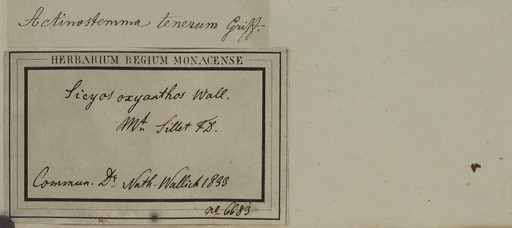 Actinostemma tenerum Griff.
HERBARIUM REGIUM MONACENSE
Sicyos oxyanthos Wall.
Mt. Sillet F.D.
Commun. Dr. Nath. Wallich 1833
no. 6683